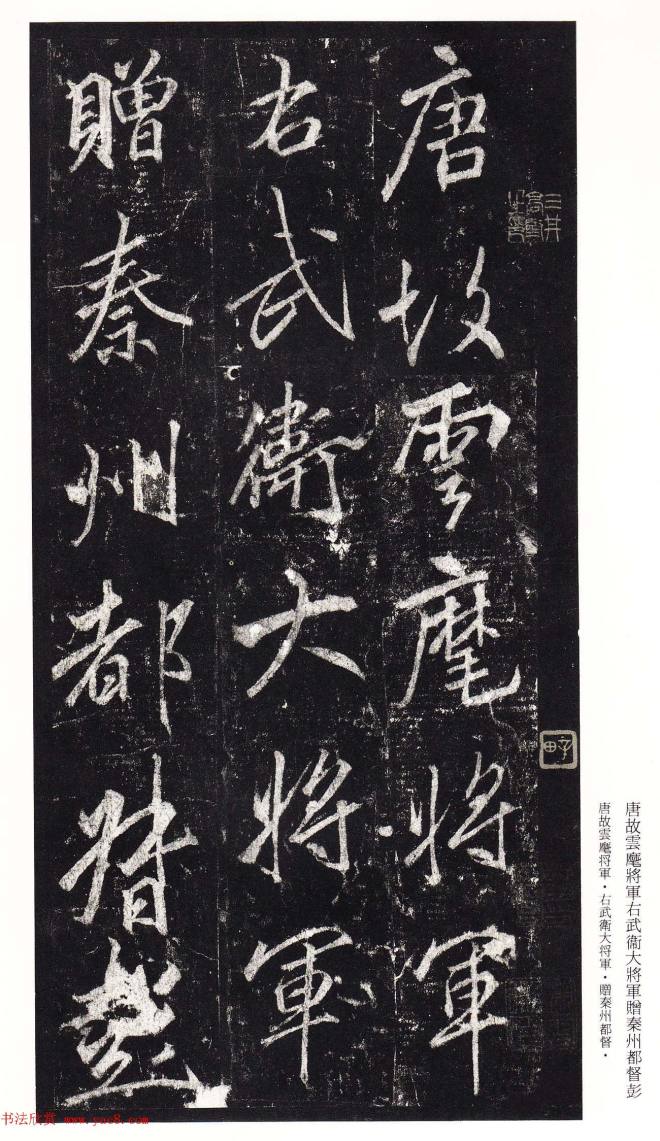 唐故雲麾將軍
右武衛大將軍
贈秦州都督
唐故雲麾將軍右武衞大將軍贈秦州都督彭
唐故雲麾将軍・右武衛大将軍・贈秦州都督・
书法欣赏 www.yac8.com